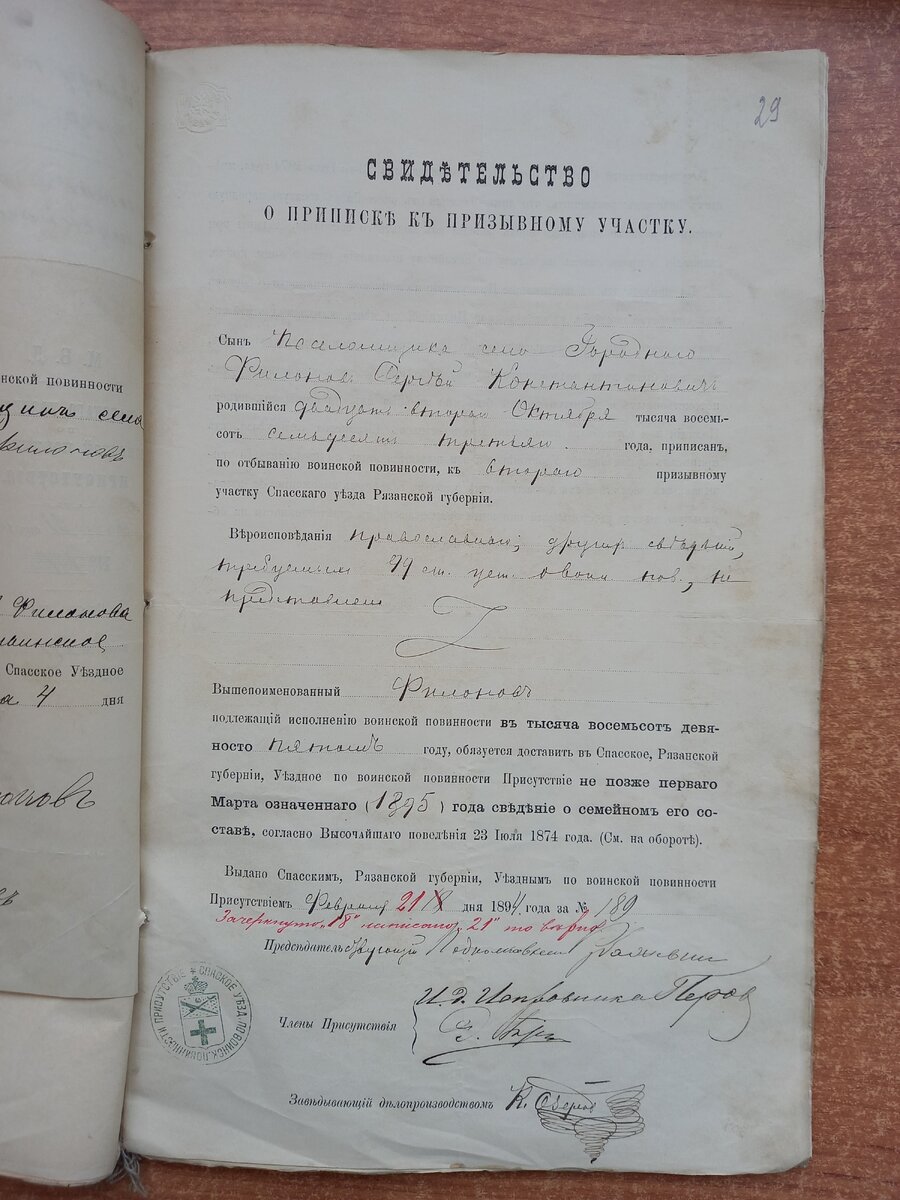 нской повинности
село
Филонова
Спасское Уѣздное
4 дня
29
СВИДѢТЕЛЬСТВО
О ПРИПИСКѢ КЪ ПРИЗЫВНОМУ УЧАСТКУ.
Сынъ Псаломщика село Городного
Филоновъ Сергѣй Константиновичъ
родившійся двадцать второго Октября тысяча восемь-
сотъ семьдесятъ третьяго года, приписан,
по отбыванію воинской повинности, къ второго призывному
участку Спасскаго уѣзда Рязанской губерніи.
Вѣроисповѣданія православнаго, другихъ свѣдѣній,
требуемыхъ 99 ст. уст. о воин. пов., не
представлено
Вышепоименованный Филоновъ
подлежащій исполненію воинской повинности въ тысяча восемьсотъ девя-
носто пятомъ году, обязуется доставить въ Спасское, Рязанской
губерніи, Уѣздное по воинской повинности Присутствіе не позже перваго
Марта означеннаго (1895) года свѣдѣніе о семейномъ его со-
ставѣ, согласно Высочайшаго повелѣнія 23 Іюля 1874 года. (См. на оборотѣ).
Выдано Спасскимъ, Рязанской губерніи, Уѣзднымъ по воинской повинности
Присутствіемъ Февраля 21 18 дня 1894 года за № 189
Зачеркнуто „18" написано „21" то вѣрно
Предсѣдательствующій
И. Д. Исправника Перов
Члены Присутствія
СПАССКОЕ УѢЗД. ПО ВОИНСК. ПОВИННОСТИ ПРИСУТСТВІЕ
Завѣдывающій дѣлопроизводствомъ К. Озеров